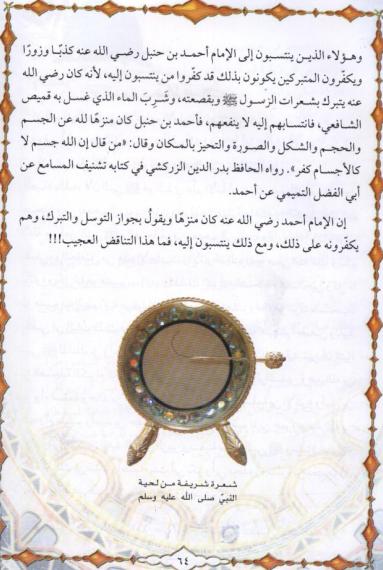 وهؤلاء الذين ينتسبون إلى الإمام أحمد بن حنبل رضي الله عنه كذبًا وزورًا
ويكفّرون المتبركين يكونون بذلك قد كفّروا من ينتسبون إليه، لأنه كان رضي الله
عنه يتبرك بشعرات الرّسول ﷺ وبقصعته، وشَرِبَ الماء الذي غسل به قميص
الشافعي، فانتسابهم إليه لا ينفعهم، فأحمد بن حنبل كان منزهًا لله عن الجسم
والحجم والشكل والصورة والتحيز بالمكان وقال: «من قال إن الله جسم لا
كالأجسام كفر». رواه الحافظ بدر الدين الزركشي في كتابه تشنيف المسامع عن
أبي الفضل التميمي عن أحمد.
إن الإمام أحمد رضي الله عنه كان منزهًا ويقولُ بجواز التوسل والتبرك، وهم
يكفّرونه على ذلك، ومع ذلك ينتسبون إليه، فما هذا التناقض العجيب!!!
شعرة شريفة من لحية
النبيّ صلى الله عليه وسلم
٦٤